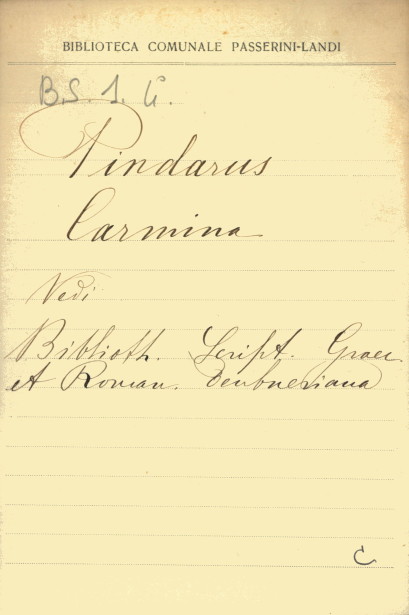 BIBLIOTECA COMUNALE PASSERINI-LANDI
B.S. 1. G.
Pindarus
Carmina
Vedi
Biblioth. Script. Graec.
et Roman. Teubneriana
C